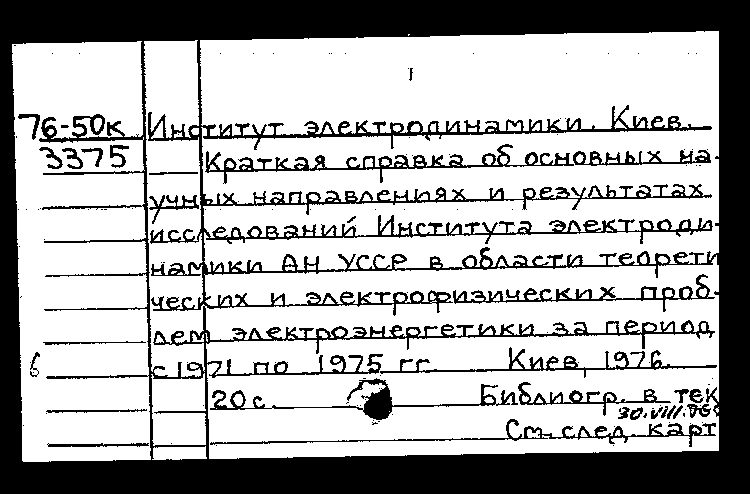 I
76-50к Институт электродинамики. Киев.
3375 Краткая справка об основных на-
учных направлениях и результатах
исследований Института электроди-
намики АН УССР в области теорети
ческих и электрофизических проб-
лем электроэнергетики за период
с 1971 по 1975 гг. Киев, 1976.
20 с. Библиогр. в тек
30.VIII.76
См. след. карт